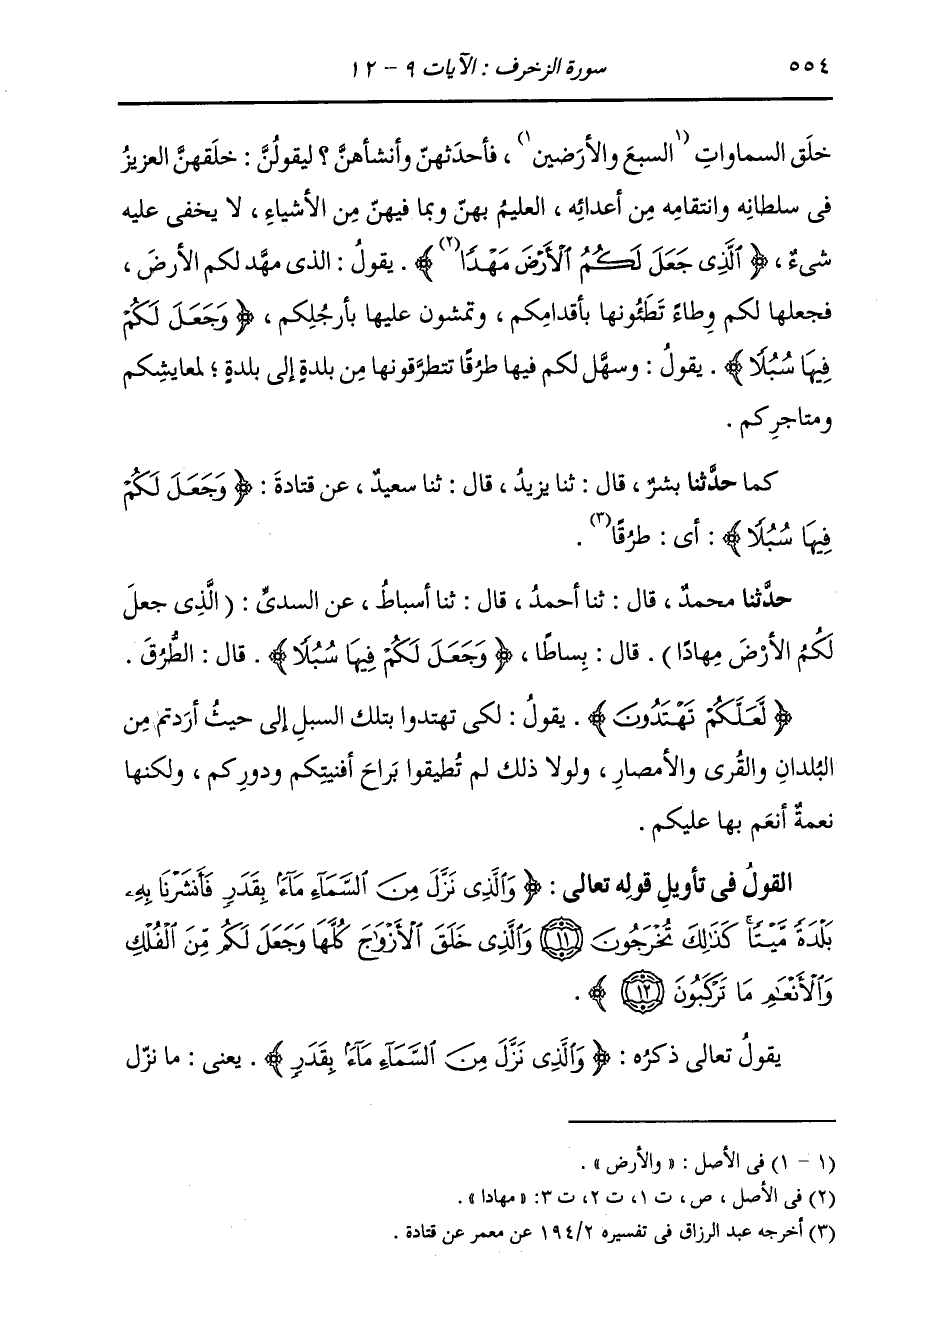 ٥٥٤ سورة الزخرف : الآيات ٩ - ١٢
خلَق السماواتِ (١ السبعَ والأرَضين ١) ، فأحدَثهنّ وأنشأهنَّ ؟ ليقولُنَّ : خلَقهنَّ العزيزُ
فى سلطانِه وانتقامِه مِن أعدائِه ، العليمُ بهنّ وبما فيهنّ مِن الأشياءِ ، لا يخفى عليه
شىءٌ ، ﴿ ٱلَّذِى جَعَلَ لَكُمُ ٱلْأَرْضَ مَهْدًا (٢) ﴾ . يقولُ : الذى مهَّد لكم الأرضَ ،
فجعلها لكم وِطاءً تَطَئونها بأقدامِكم ، وتمشون عليها بأرجُلِكم ، ﴿ وَجَعَلَ لَكُمْ
فِيهَا سُبُلًا ﴾ . يقولُ : وسهَّل لكم فيها طرُقًا تتطرَّقونها مِن بلدةٍ إلى بلدةٍ ؛ لمعايشِكم
ومتاجرِكم .
كما حدَّثنا بشرٌ ، قال : ثنا يزيدُ ، قال : ثنا سعيدٌ ، عن قتادةَ : ﴿ وَجَعَلَ لَكُمْ
فِيهَا سُبُلًا ﴾ : أى : طرُقًا (٣) .
حدَّثنا محمدٌ ، قال : ثنا أحمدُ ، قال : ثنا أسباطُ ، عن السدىِّ : ( الَّذِى جعلَ
لَكُمُ الأرْضَ مِهادًا ) . قال : بِساطًا ، ﴿ وَجَعَلَ لَكُمْ فِيهَا سُبُلًا ﴾ . قال : الطُّرُقَ .
﴿ لَّعَلَّكُمْ تَهْتَدُونَ ﴾ . يقولُ : لكى تهتدوا بتلك السبلِ إلى حيثُ أرَدتم مِن
البُلدانِ والقُرى والأمصارِ ، ولولا ذلك لم تُطيقوا بَراحَ أفنيتِكم ودورِكم ، ولكنها
نعمةٌ أنعَم بها عليكم .
القولُ فى تأويلِ قولِه تعالى : ﴿ وَٱلَّذِى نَزَّلَ مِنَ ٱلسَّمَآءِ مَآءًۢ بِقَدَرٍ فَأَنشَرْنَا بِهِۦ
بَلْدَةً مَّيْتًا ۚ كَذَٰلِكَ تُخْرَجُونَ ١١ وَٱلَّذِى خَلَقَ ٱلْأَزْوَٰجَ كُلَّهَا وَجَعَلَ لَكُم مِّنَ ٱلْفُلْكِ
وَٱلْأَنْعَٰمِ مَا تَرْكَبُونَ ١٢ ﴾ .
يقولُ تعالى ذكرُه : ﴿ وَٱلَّذِى نَزَّلَ مِنَ ٱلسَّمَآءِ مَآءًۢ بِقَدَرٍ ﴾ . يعنى : ما نزّل
(١ - ١) فى الأصل : « والأرض » .
(٢) فى الأصل ، ص ، ت ١، ت ٢، ت ٣: « مهادا » .
(٣) أخرجه عبد الرزاق فى تفسيره ١٩٤/٢ عن معمر عن قتادة .